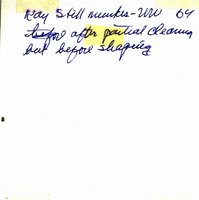 Kay Still number - WW 64
before after partial cleaning
but before shaping